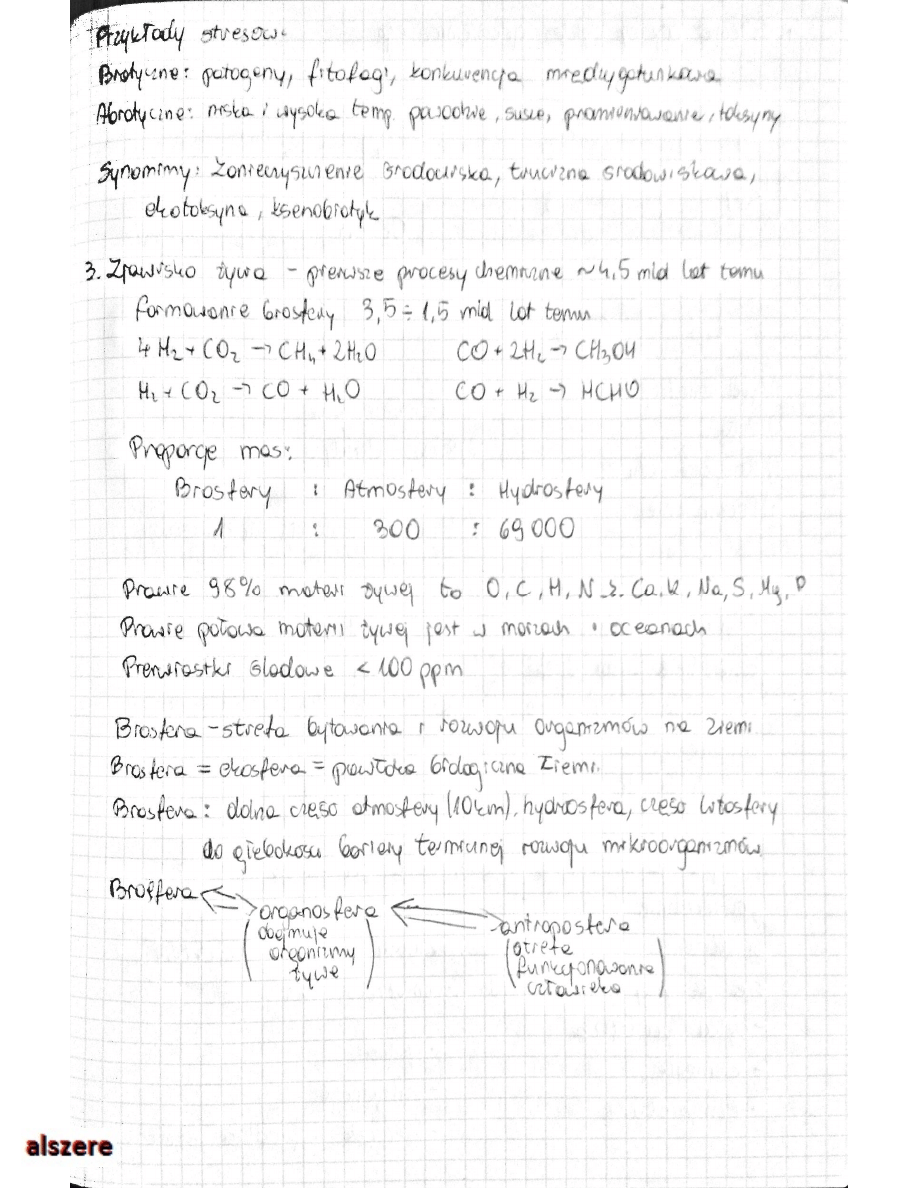 Przykłady stresów:
Biotyczne: patogeny, fitofagi, konkurencja międzygatunkowa
Abiotyczne: niska i wysoka temp. powodzie, susze, promieniowanie, toksyny
Synonimy: Zanieczyszczenie środowiska, trucizna środowiskowa,
ekotoksyna, ksenobiotyk
3. Zjawisko życia - pierwsze procesy chemiczne ~4,5 mld lat temu
formowanie biosfery 3,5 ÷ 1,5 mld lat temu
4H₂ + CO₂ → CH₄ + 2H₂O CO + 2H₂ → CH₃OH
H₂ + CO₂ → CO + H₂O CO + H₂ → HCHO
Proporcje mas:
Biosfery : Atmosfery : Hydrosfery
1 : 300 : 69 000
Prawie 98% materii żywej to O, C, H, N Ca, K, Na, S, Mg, P
Prawie połowa materii żywej jest w morzach i oceanach
Pierwiastki śladowe < 100 ppm
Biosfera - strefa bytowania i rozwoju organizmów na Ziemi
Biosfera = ekosfera = powłoka biologiczna Ziemi.
Biosfera: dolna część atmosfery (10km), hydrosfera, część litosfery
do głębokości bariery termicznej rozwoju mikroorganizmów
Biosfera
organosfera
(obejmuje
organizmy
żywe)
antroposfera
(strefa
funkcjonowania
człowieka)
alszere